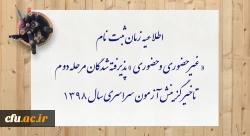 اطلاعیه زمان ثبت نام
«غیرحضوری و حضوری» پذیرفته شدگان مرحله دوم
تاخیر گزینش آزمون سراسری سال ۱۳۹۸
cfu.ac.ir